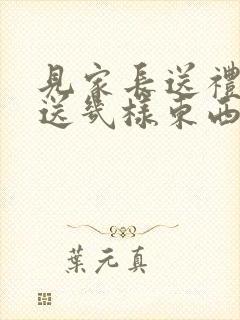 見家長送禮
送幾樣東西
葉元真